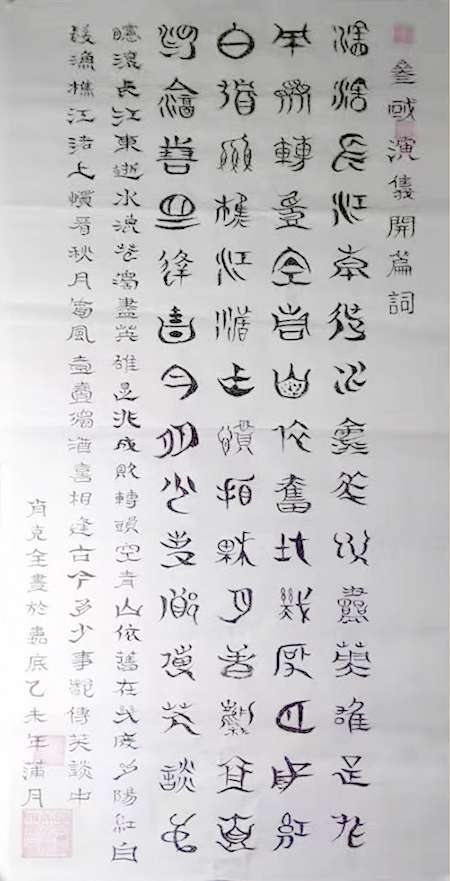 叁國演儀開篇詞
滾滾長江東逝水浪花淘盡英雄是非
成敗轉頭空青山依舊在幾度夕陽紅
白髮漁樵江渚上慣看秋月春風壹壺
濁酒喜相逢古今多少事都付笑談中
滾滾長江東逝水浪花淘盡英雄是非成敗轉頭空青山依舊在幾度夕陽紅白
髮漁樵江渚上慣看秋月春風壹壺濁酒喜相逢古今多少事都傳笑談中
肖克全書於底乙未年蒲月